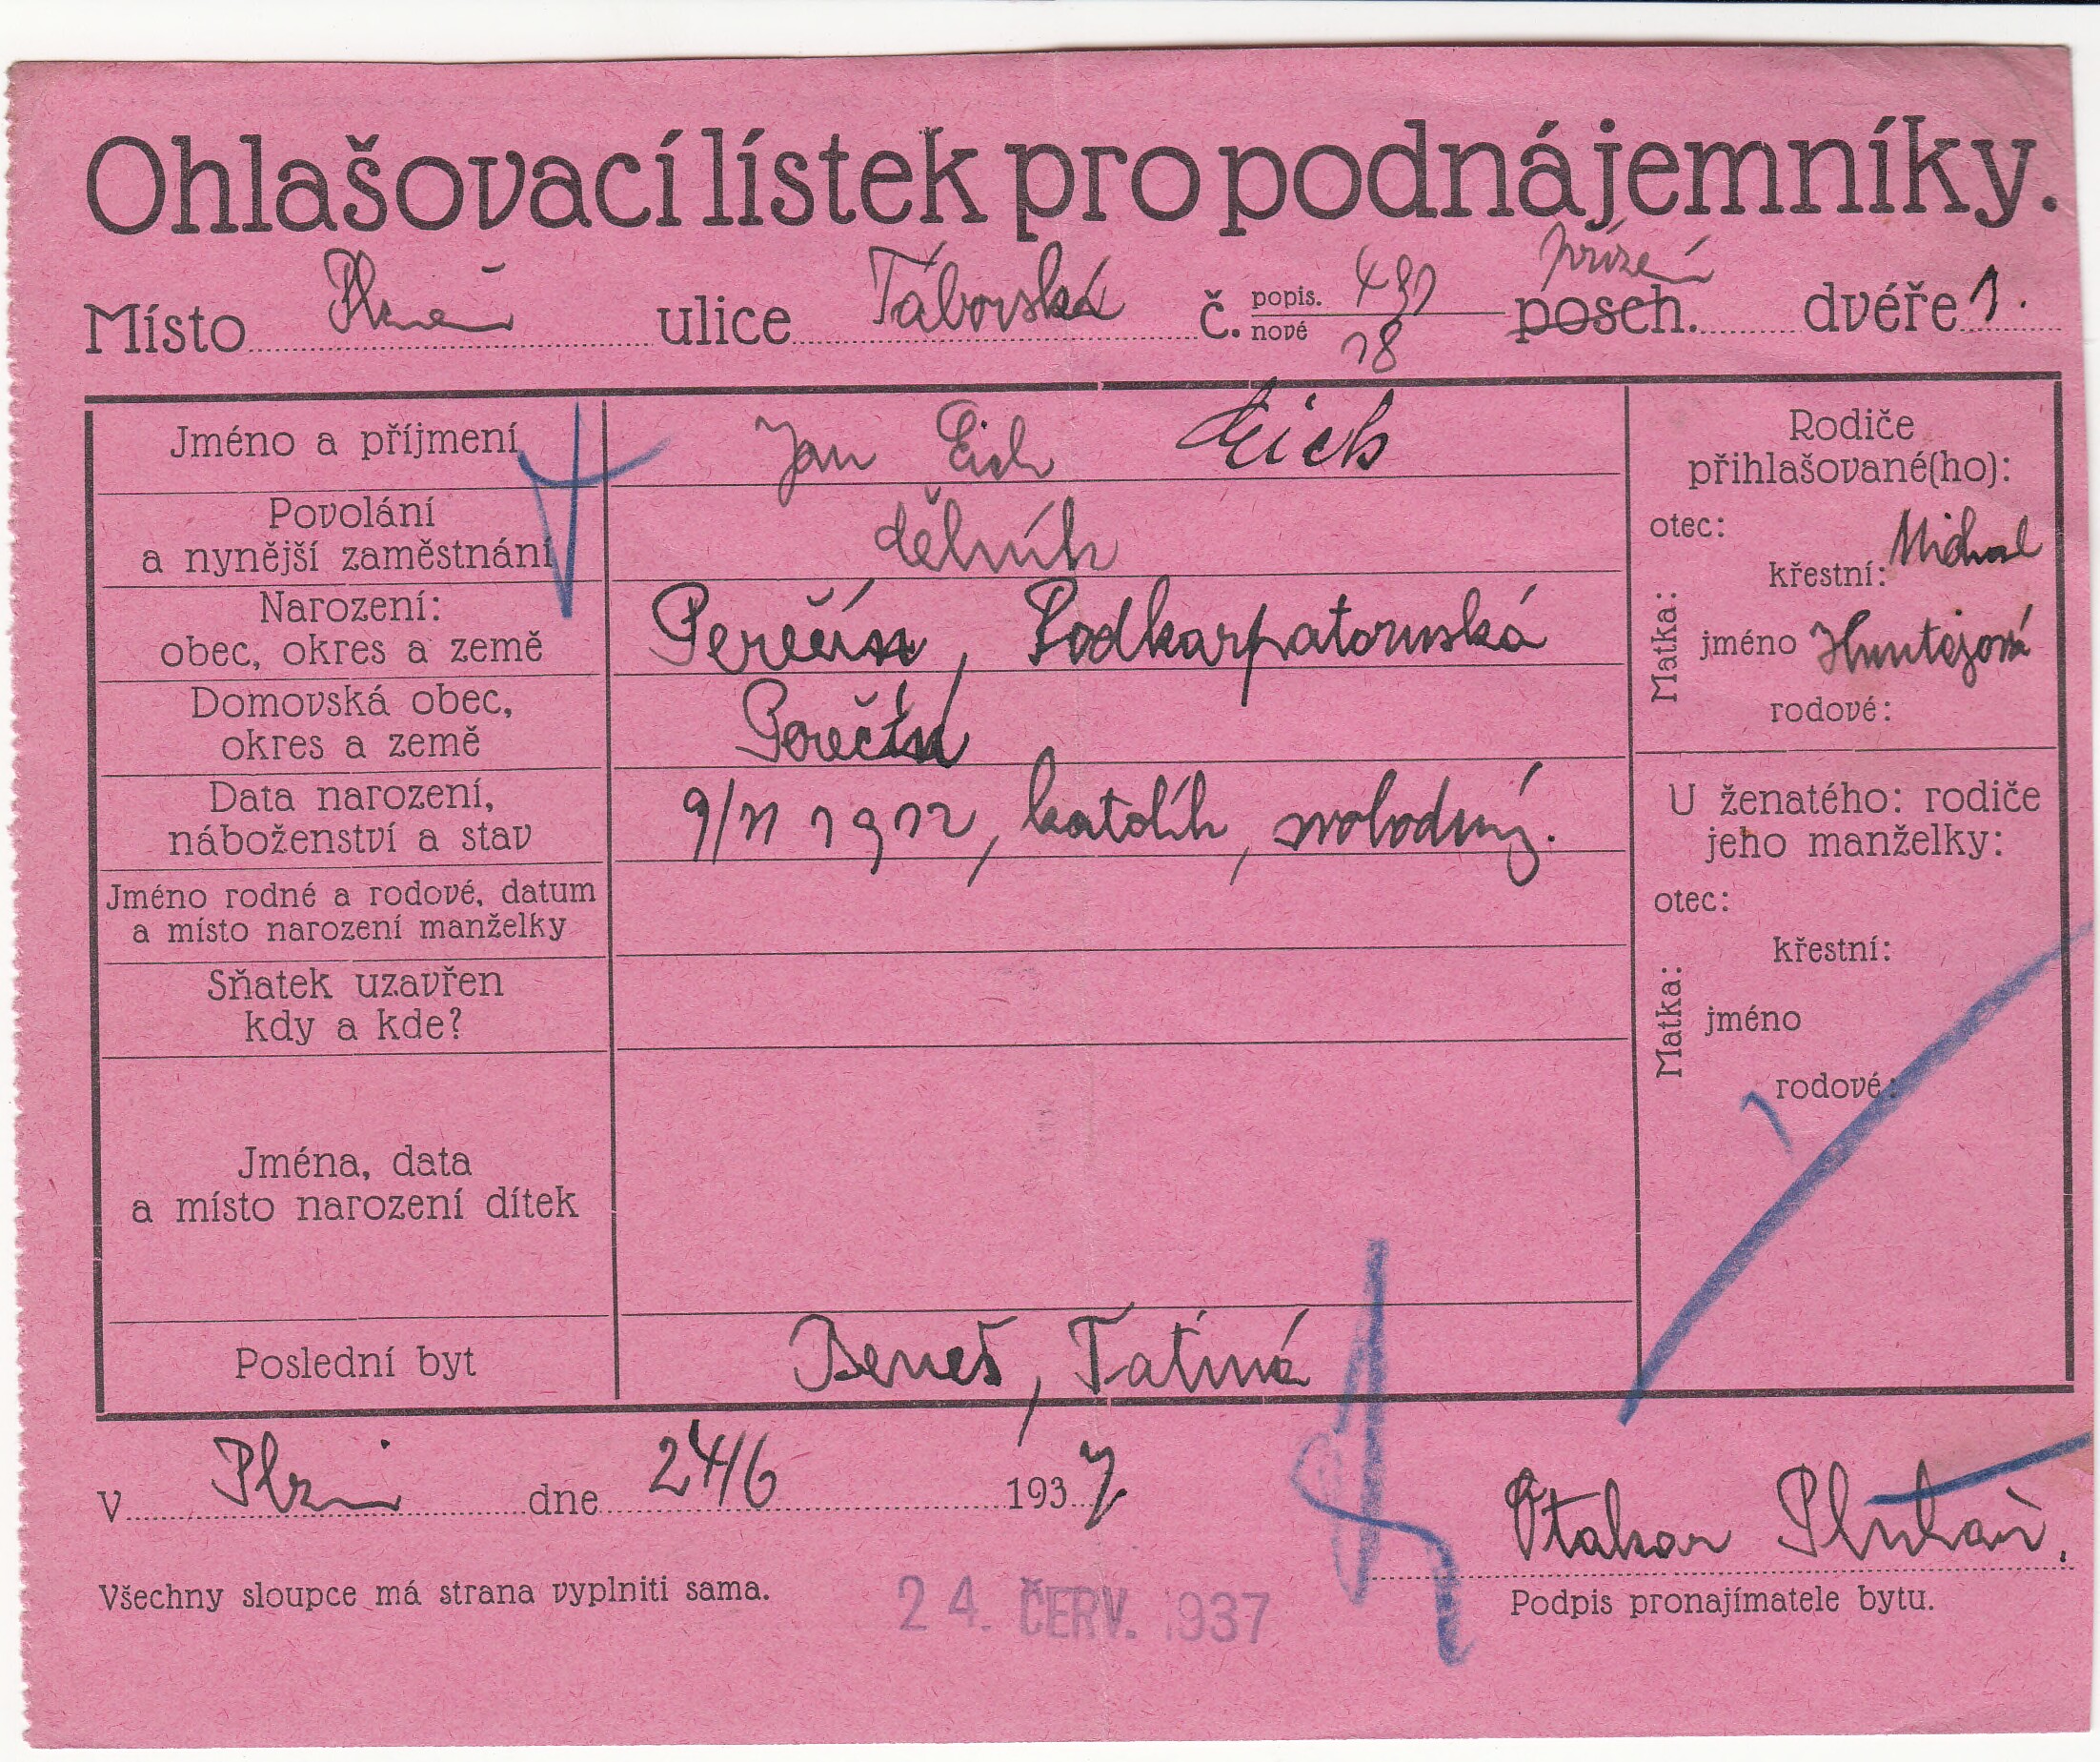 Ohlašovací lístek pro podnájemníky.
Místo Plzeň ulice Táborská č. popis. 491 nové 18 posch. přízemí dvéře 1.
Jméno a příjmení Jan Eich Eich
Povolání
a nynější zaměstnání dělník
Narození:
obec, okres a země Perečín, Podkarpatoruská
Domovská obec,
okres a země Perečín
Data narození,
náboženství a stav 9/11 1912, katolík, svobodný.
Jméno rodné a rodové, datum
a místo narození manželky
Sňatek uzavřen
kdy a kde?
Jména, data
a místo narození dítek
Poslední byt Beneš,
Rodiče
přihlašované(ho):
otec: Michal
Matka:
křestní:
jméno
rodové:
U ženatého: rodiče
jeho manželky:
otec:
Matka:
křestní:
jméno
rodové:
V Plzni dne 24/6 1937
Otakar
Všechny sloupce má strana vyplniti sama.
24. ČERV. 1937
Podpis pronajímatele bytu.